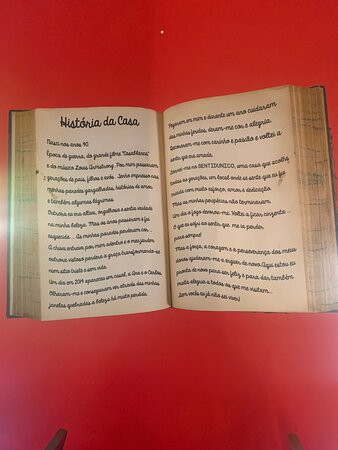 História da Casa
Nasci nos anos 40.
Época de guerra, do grande filme "Casablanca"
e do músico Louis Armstrong. Por mim passaram
gerações de pais, filhos e avós. Tenho impressos nas
minhas paredes gargalhadas, histórias de amor
e também algumas lágrimas.
Outrora eu era altiva, orgulhosa e sentia vaidade
na minha beleza. Mas os anos passaram e fui
esquecida... As minhas paredes perderam cor...
A chuva entrava por mim adentro e o meu jardim
outrora vistoso perdera a graça transformando-se
num sítio triste e sem vida.
Um dia em 2011 apareceu um casal, a Ana e o Carlos.
Olharam-me e conseguiram ver através das minhas
janelas quebradas a beleza há muito perdida.
Pegaram em mim e durante um ano cuidaram
das minhas feridas, deram-me cor, e alegria.
Decoraram-me com carinho e paixão e voltei a
sentir que era amada.
Tornei-me no SENTIDUNICO, uma casa que acolhe
todas as gerações, um local onde se sente que eu fui
cuidada com muito esforço, amor, e dedicação.
Mas as minhas peripécias não terminaram.
Um dia o fogo devorou-me. Voltei a ficar cinzenta...
O que eu sofri ao sentir que me ia perder
para sempre!
Mas a força, a coragem e a perseverança dos meus
donos ajudaram-me a erguer de novo. Aqui estou eu
pronta de novo para ser feliz e para dar também
muita alegria a todos os que me visitam...
Sem vocês eu já não sei viver!